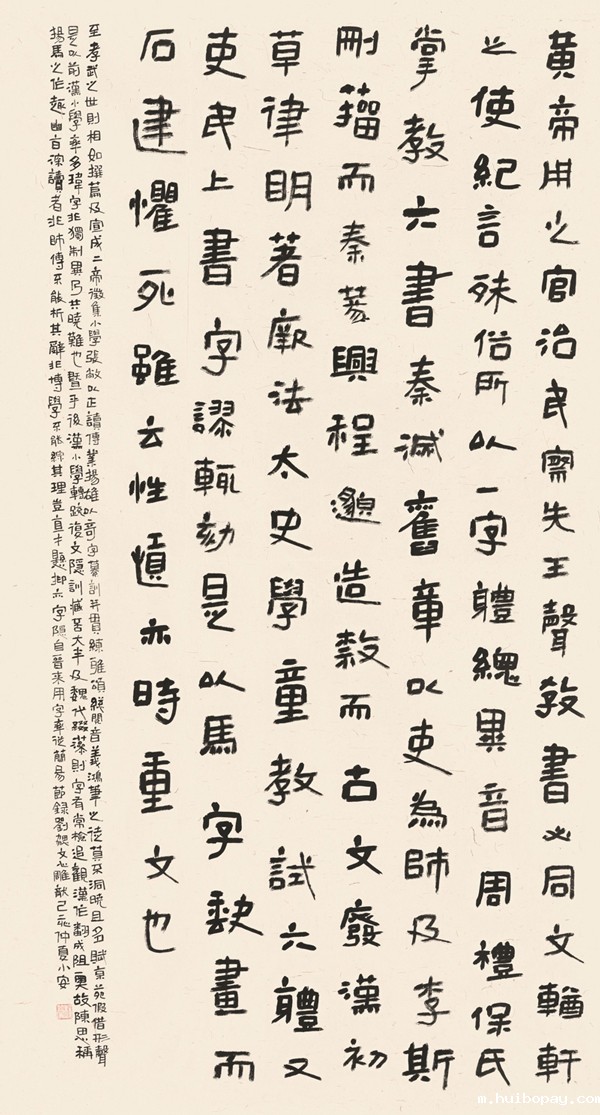 黃帝用之官治民察先王聲教書必同文輶軒
之使紀言殊俗所以一字體總異音周禮保氏
掌教六書秦滅舊章以吏為師及李斯
刪籀而秦篆興程邈造隸而古文廢漢初
草律明著厥法太史學童教試六體又
吏民上書字謬輒劾是以馬字缺畫而
石建懼死雖云性慎亦時重文也
至孝武之世則相如撰篇及宣成二帝徵集小學張敞以正讀傳業揚雄以奇字纂訓并貫練雅頌總閱音義鴻筆之徒莫不洞曉且多賦京苑假借形聲
是以前漢小學率多瑋字非獨制異乃共曉難也暨乎後漢小學轉疏復文隱訓臧否大半及魏代綴藻則字有常檢追觀漢作翻成阻奧故陳思稱
揚馬之作趣幽旨深讀者非師傳不能析其辭非博學不能綜其理豈直才懸抑亦字隱自晉來用字率從簡易節錄劉勰文心雕龍己亥仲夏小安
m.huibopay.com